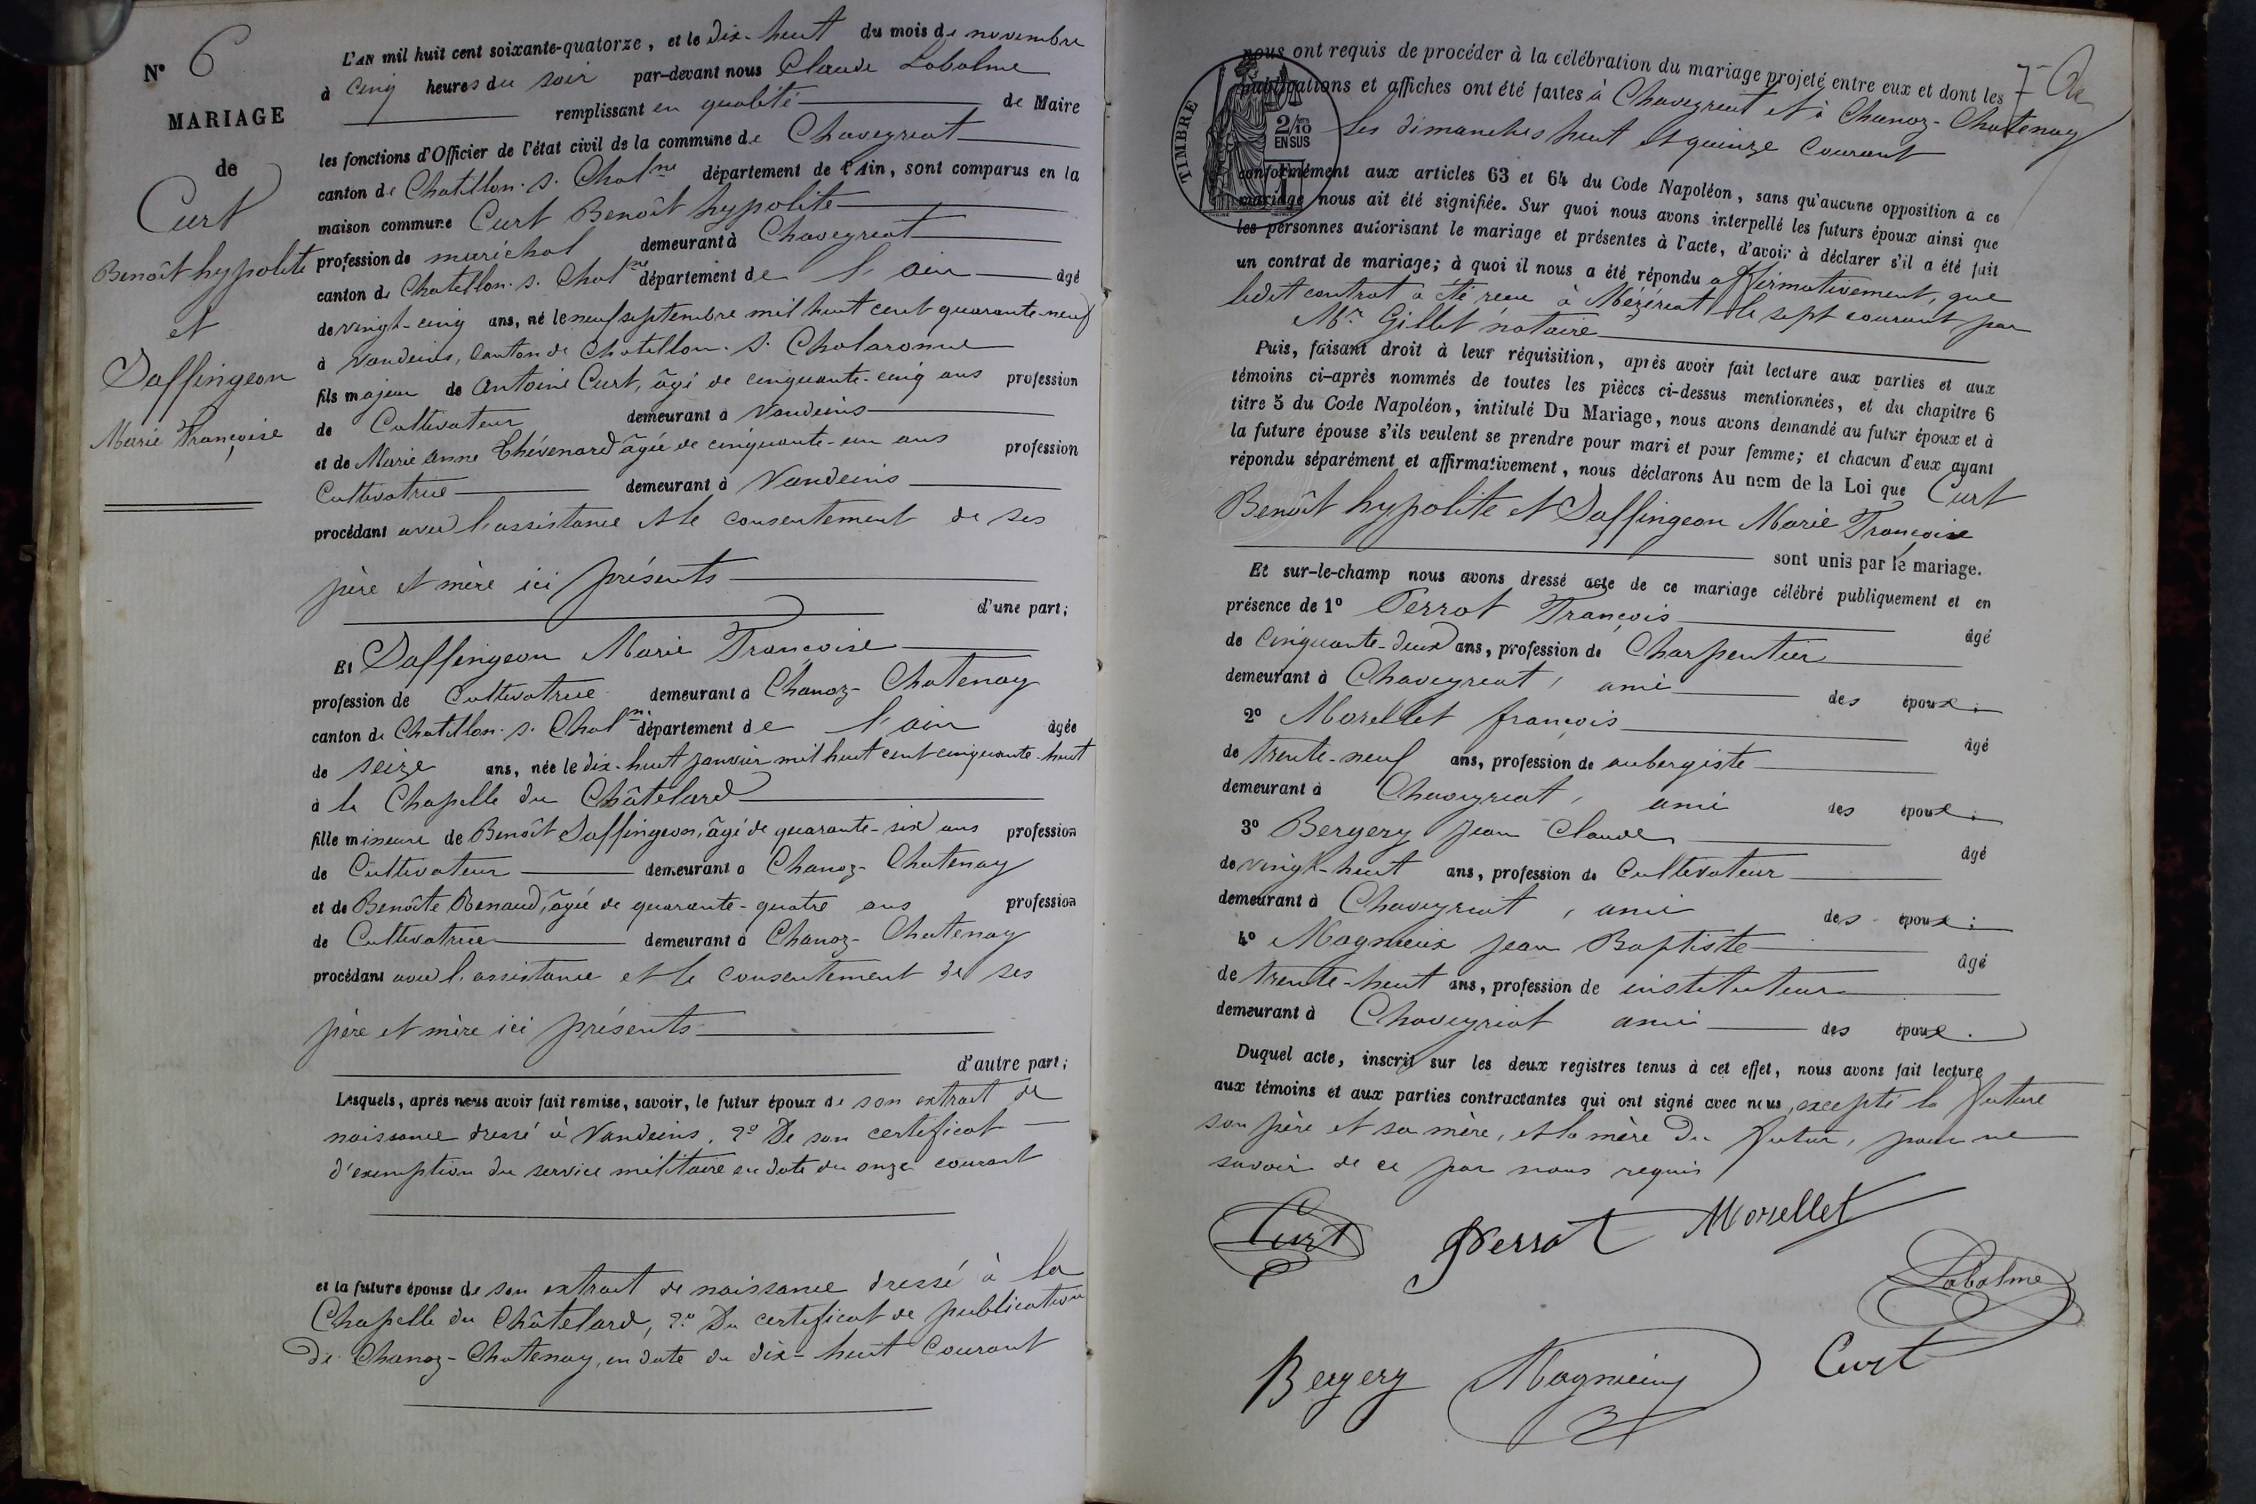 N° 6
MARIAGE
de
Curt
Benoît hypolite
et
Daffingeon
Marie Françoise
L'AN mil huit cent soixante-quatorze, et le dix-huit du mois de novembre
à cinq heures du soir par-devant nous Claude Labalme
remplissant en qualité de Maire
les fonctions d'Officier de l'état civil de la commune de Chaveyriat
canton de Chatillon. s. Chal.ne département de l'Ain, sont comparus en la
maison commune Curt Benoît hypolite
profession de maréchal demeurant à Chaveyriat
canton de Chatillon. s. Chal.ne département de l'ain âgé
de vingt-cinq ans, né le neuf septembre mil huit cent quarante-neuf
à Vandeins, canton de Chatillon. s. Chalaronne
fils majeur de Antoine Curt, âgé de cinquante-cinq ans profession
de Cultivateur demeurant à Vandeins
et de Marie Anne Thévenard âgée de cinquante-un ans profession
Cultivatrice demeurant à Vandeins
procédant avec l'assistance et le consentement de ses
père et mère ici présents
d'une part;
Et Daffingeon Marie Françoise
profession de Cultivatrice demeurant à Chanoz-Chatenay
canton de Chatillon. s. Chal.ne département de l'ain âgée
de seize ans, née le dix-huit janvier mil huit cent cinquante-huit
à la Chapelle du Châtelard
fille mineure de Benoît Daffingeon, âgé de quarante-six ans profession
de Cultivateur demeurant à Chanoz-Chatenay
et de Benoîte Renaud, âgée de quarante-quatre ans profession
de Cultivatrice demeurant à Chanoz-Chatenay
procédant avec l'assistance et le consentement de ses
père et mère ici présents
d'autre part;
Lesquels, après nous avoir fait remise, savoir, le futur époux de son extrait de
naissance dressé à Vandeins, 2° De son certificat
d'exemption du service militaire en date du onze courant
et la future épouse de son extrait de naissance dressé à la
Chapelle du Châtelard, 2° Du certificat de publication
de Chanoz-Chatenay, en date du dix-huit courant
TIMBRE
2/10
EN SUS
nous ont requis de procéder à la célébration du mariage projeté entre eux et dont les
publications et affiches ont été faites à Chaveyriat et à Chanoz-Chatenay
les dimanches huit et quinze Courant
conformément aux articles 63 et 64 du Code Napoléon, sans qu'aucune opposition à ce
mariage nous ait été signifiée. Sur quoi nous avons interpellé les futurs époux ainsi que
les personnes autorisant le mariage et présentes à l'acte, d'avoir à déclarer s'il a été fait
un contrat de mariage; à quoi il nous a été répondu affirmativement, que
ledit contrat a été reçu à Mézériat le sept courant par
Mr. Gillet notaire
Puis, faisant droit à leur réquisition, après avoir fait lecture aux parties et aux
témoins ci-après nommés de toutes les pièces ci-dessus mentionnées, et du chapitre 6
titre 5 du Code Napoléon, intitulé Du Mariage, nous avons demandé au futur époux et à
la future épouse s'ils veulent se prendre pour mari et pour femme; et chacun d'eux ayant
répondu séparément et affirmativement, nous déclarons Au nom de la Loi que Curt
Benoît hypolite et Daffingeon Marie Françoise
sont unis par le mariage.
Et sur-le-champ nous avons dressé acte de ce mariage célébré publiquement et en
présence de 1° Perrot François âgé
de Cinquante-deux ans, profession de Charpentier
demeurant à Chaveyriat, ami des époux;
2° Morellet françois âgé
de trente-neuf ans, profession de aubergiste
demeurant à Chaveyriat, ami des époux;
3° Bergery Jean Claude âgé
de vingt-huit ans, profession de Cultivateur
demeurant à Chaveyriat, ami des époux;
4° Magnieux Jean Baptiste âgé
de trente-huit ans, profession de instituteur
demeurant à Chaveyriat ami des époux.
Duquel acte, inscrit sur les deux registres tenus à cet effet, nous avons fait lecture
aux témoins et aux parties contractantes qui ont signé avec nous, excepté la future
son père et sa mère, et la mère du futur, pour ne
savoir de ce par nous requis
Curt Perrot Morellet
Labalme
Bergery Magnieux Curt